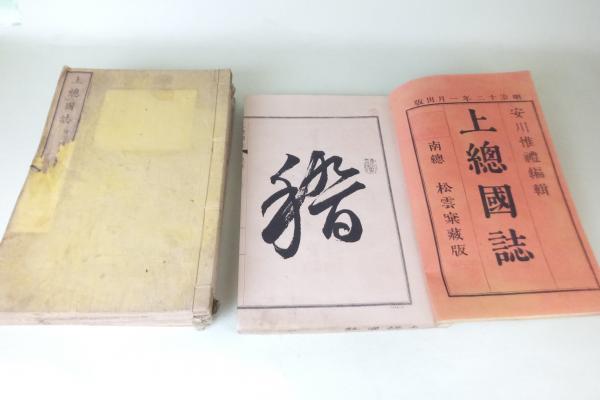 上總國誌
稽
明治十二年一月出版
安川惟禮編輯
上總國誌
南總 松雲寀藏版